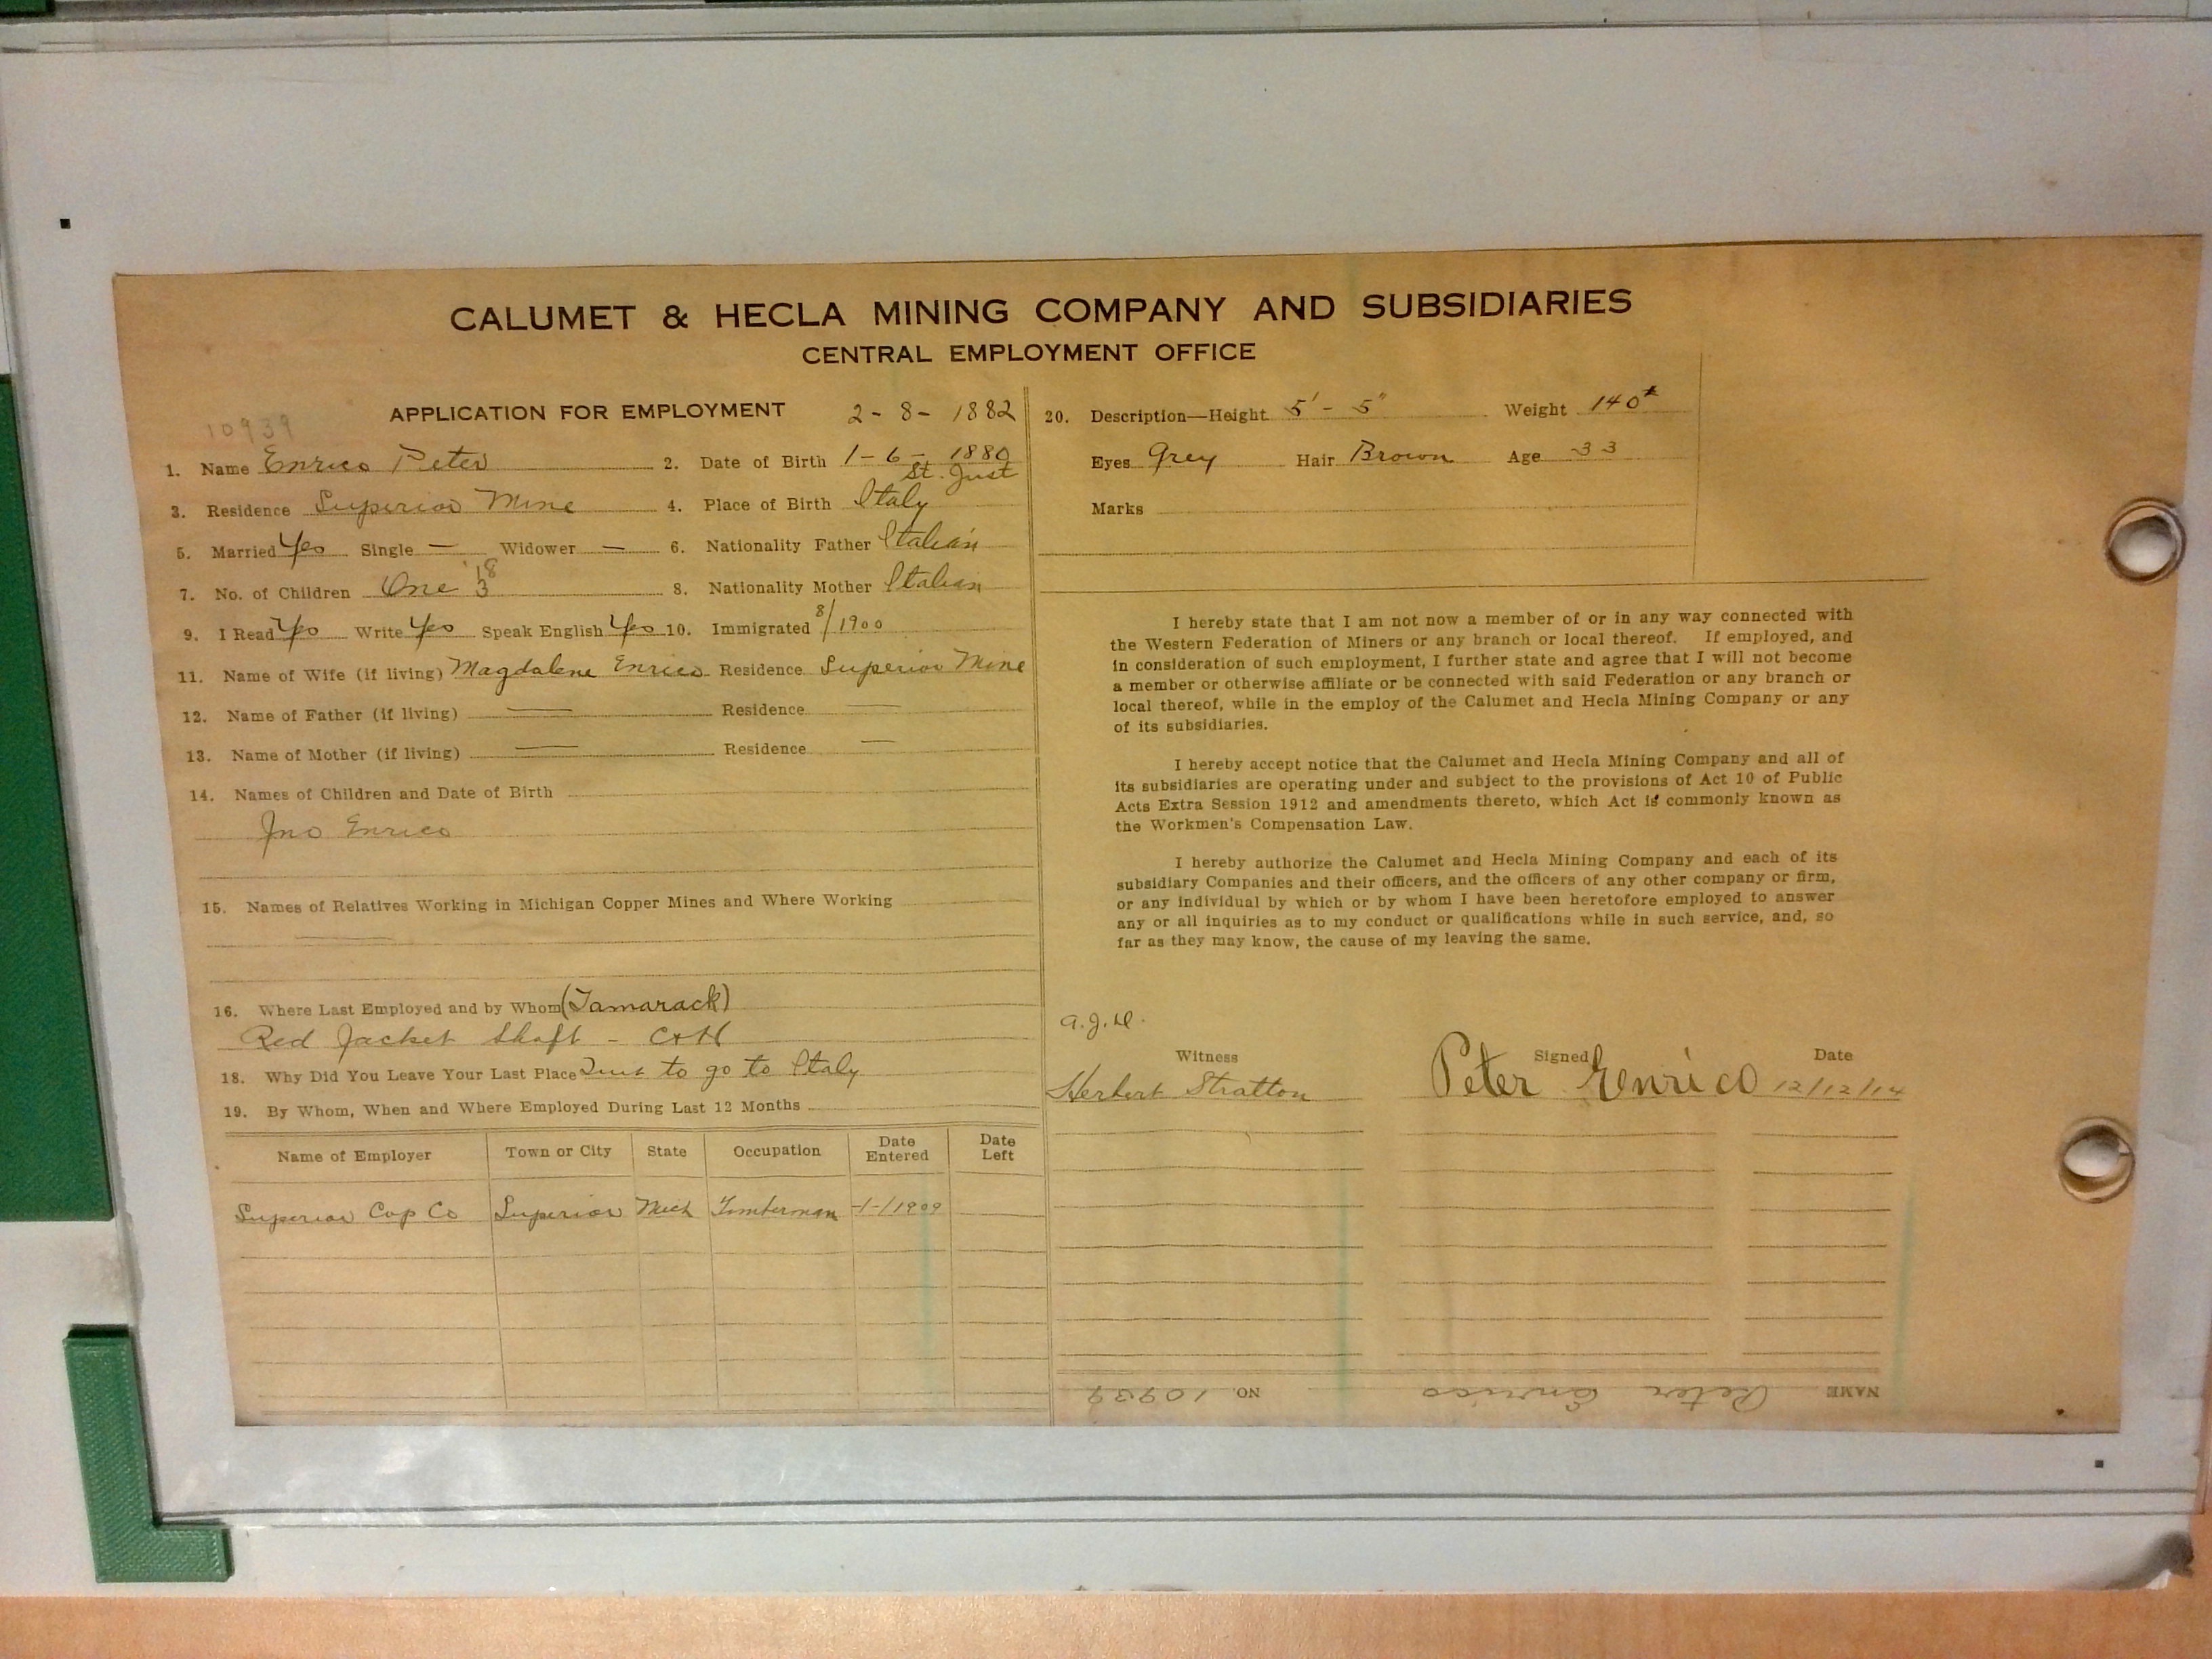 CALUMET & HECLA MINING COMPANY AND SUBSIDIARIES
CENTRAL EMPLOYMENT OFFICE
APPLICATION FOR EMPLOYMENT 2-8-1882
10939
1. Name Enrico Peter 2. Date of Birth 1-6-1880
St. Just
3. Residence Superior Mine 4. Place of Birth Italy
5. Married Yes Single — Widower — 6. Nationality Father Italian
18
7. No. of Children One 3 8. Nationality Mother Italian
9. I Read Yes Write Yes Speak English Yes 10. Immigrated 8/1900
11. Name of Wife (if living) Magdalene Enrico Residence Superior Mine
12. Name of Father (if living) — Residence —
13. Name of Mother (if living) — Residence —
14. Names of Children and Date of Birth
Jno Enrico
15. Names of Relatives Working in Michigan Copper Mines and Where Working
—
16. Where Last Employed and by Whom (Tamarack)
Red Jacket Shaft - C&H
18. Why Did You Leave Your Last Place to go to Italy
19. By Whom, When and Where Employed During Last 12 Months
Name of Employer Town or City State Occupation Date Entered Date Left
Superior Cop Co Superior Mich Timberman -1-/1909
20. Description—Height 5'-5" Weight 140#
Eyes Grey Hair Brown Age 33
Marks
I hereby state that I am not now a member of or in any way connected with
the Western Federation of Miners or any branch or local thereof. If employed, and
in consideration of such employment, I further state and agree that I will not become
a member or otherwise affiliate or be connected with said Federation or any branch or
local thereof, while in the employ of the Calumet and Hecla Mining Company or any
of its subsidiaries.
I hereby accept notice that the Calumet and Hecla Mining Company and all of
its subsidiaries are operating under and subject to the provisions of Act 10 of Public
Acts Extra Session 1912 and amendments thereto, which Act is commonly known as
the Workmen's Compensation Law.
I hereby authorize the Calumet and Hecla Mining Company and each of its
subsidiary Companies and their officers, and the officers of any other company or firm,
or any individual by which or by whom I have been heretofore employed to answer
any or all inquiries as to my conduct or qualifications while in such service, and, so
far as they may know, the cause of my leaving the same.
Witness Signed Date
Herbert Stratton Peter Enrico 12/12/14
NAME Peter Enrico NO. 10939